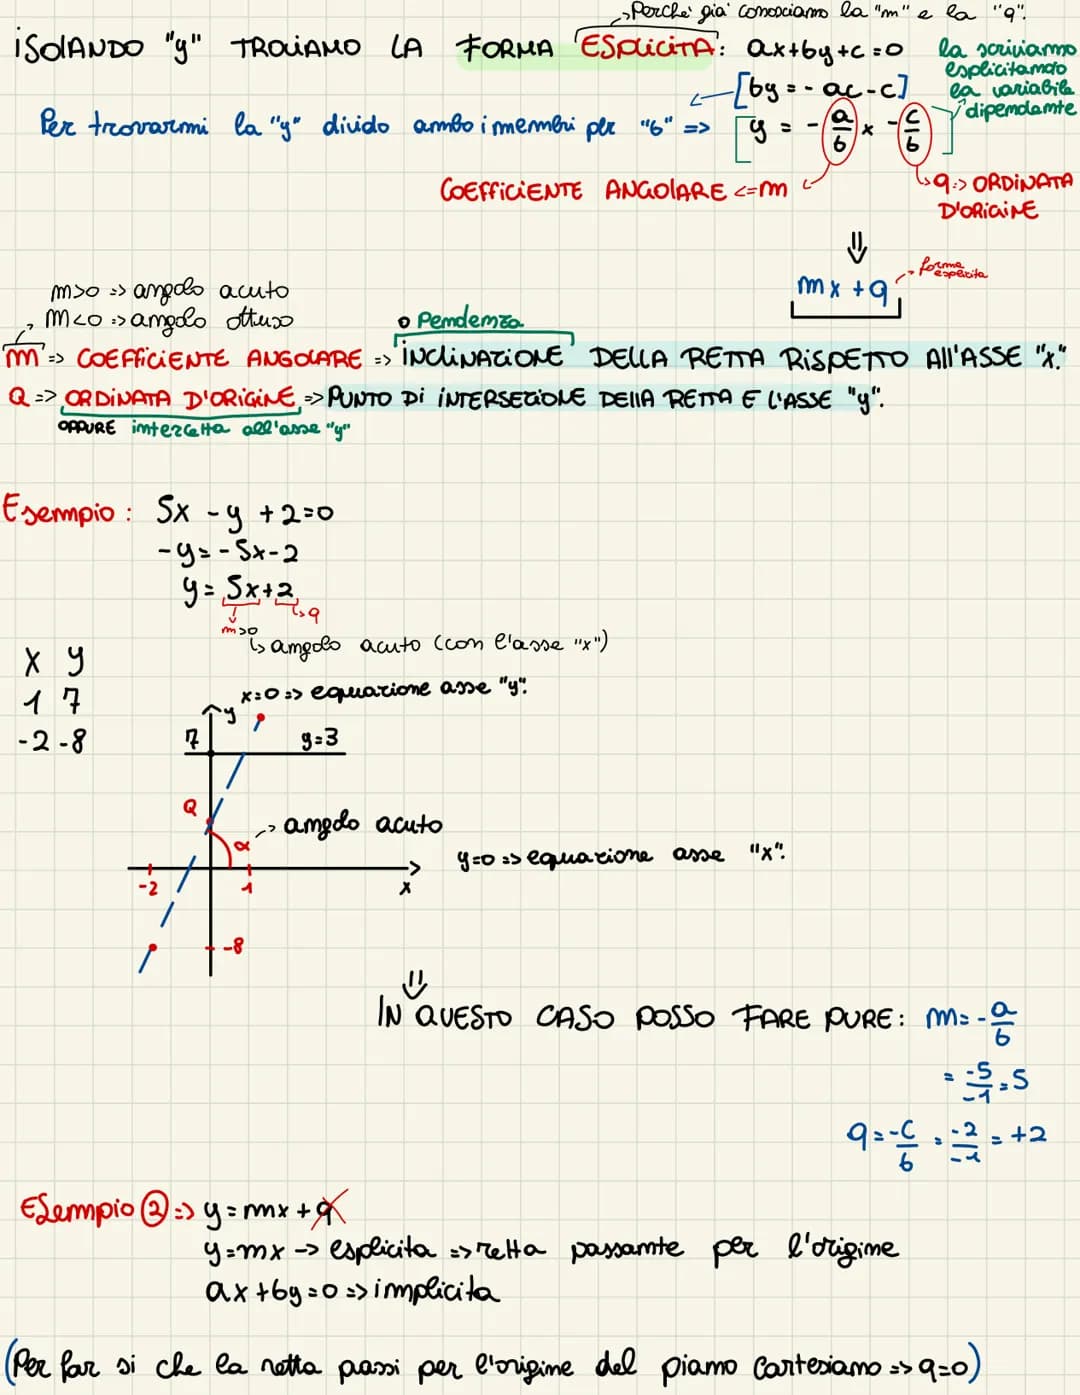 Perché già conosciamo la "m" e la "q".
ISOLANDO "y" TROVIAMO LA FORMA ESPLICITA: ax+by+c=0
la scriviamo
esplicitando
la variabile
dipendente
[by = - ac - c]
Per trovarmi la "y" divido ambo i membri per "b" => [y = - a/b x - c/b]
COEFFICIENTE ANGOLARE <= m
q => ORDINATA
D'ORIGINE
⇓
mx + q
forma
esplicita
m>0 => angolo acuto
m<0 => angolo ottuso
o Pendenza
m => COEFFICIENTE ANGOLARE => INCLINAZIONE DELLA RETTA RISPETTO All'ASSE "x".
Q => ORDINATA D'ORIGINE => PUNTO DI INTERSEZIONE DEllA RETTA E L'ASSE "y".
OPPURE intercetta all'asse "y"
Esempio: 5x - y + 2 = 0
-y = - 5x - 2
y = 5x + 2
m>0
q
angolo acuto (con l'asse "x")
x y
1 7
-2 -8
x=0 => equazione asse "y".
y
7
y=3
Q
α
angolo acuto
y=0 => equazione asse "x".
-2
1
x
-8
⇓
IN QUESTO CASO POSSO FARE PURE: m = - a/b
= -5/-1 = 5
q = -c/b = -2/-1 = +2
Esempio ② => y = mx + q
y = mx -> esplicita => retta passante per l'origine
ax + by = 0 => implicita
(Per far si che la retta passi per l'origine del piano Cartesiano => q=0)